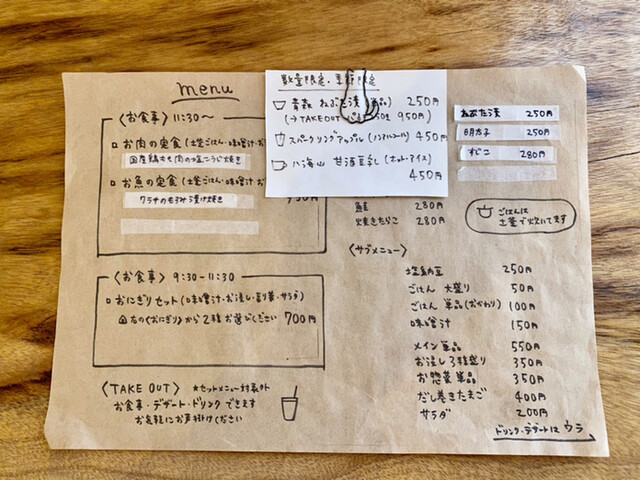 menu
〈お食事〉11:30〜
お肉の定食(土釜ごはん・味噌汁・お
国産鶏もも肉の塩こうじ焼き
お魚の定食(土釜ごはん・味噌汁・お
ワラサのもろみ漬け焼き
〈お食事〉9:30-11:30
おにぎりセット(味噌汁・お浸し・彩り菜・サラダ)
右の《おにぎり》から2種お選びください 700円
〈TAKE OUT〉 *セットメニュー対象外
お食事・デザート・ドリンクできます
お気軽にお声掛けください
数量限定・季節限定
青森 ねぶた漬(単品) 250円
(→TAKEOUT 950円
スパークリングアップル(ノンアルコール) 450円
八海山 甘酒豆乳(ホット・アイス)
450円
ねぶた漬 250円
明太子 250円
すじこ 280円
鮭 280円
焼きたらこ 280円
ごはんは
土釜で炊いてます
〈サブメニュー〉
塩納豆 250円
ごはん 大盛り 50円
ごはん 単品(おかわり) 100円
味噌汁 150円
メイン単品 550円
お浸し3種盛り 350円
お惣菜単品 350円
だし巻きたまご 400円
サラダ 200円
ドリンク・デザートは ウラ